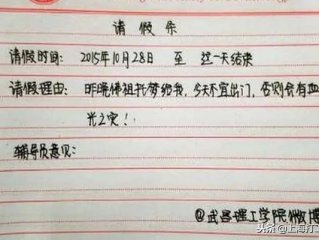 请假条
请假时间: 2015年10月28日 至 这一天结束
请假理由: 昨晚佛祖托梦给我,今天不宜出门,否则会有血
光之灾!
辅导员意见:
@武昌理工学院微博
头条@上海打